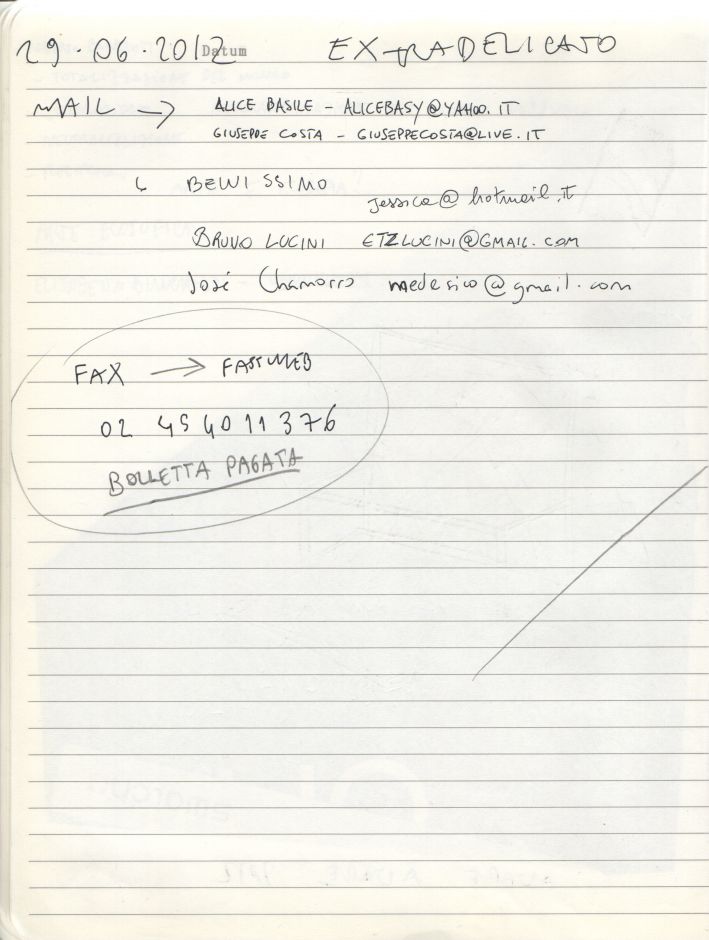 29.06.2012 Datum EXTRADELICATO
MAIL → ALICE BASILE - ALICEBASY@YAHOO.IT
GIUSEPPE COSTA - GIUSEPPECOSTA@LIVE.IT
↳ BENISSIMO
jessica@hotmail.it
BRUNO LUCINI ETZLUCINI@GMAIL.COM
José Chamorro medesico@gmail.com
FAX → FASTWEB
02 45 40 11 376
BOLLETTA PAGATA